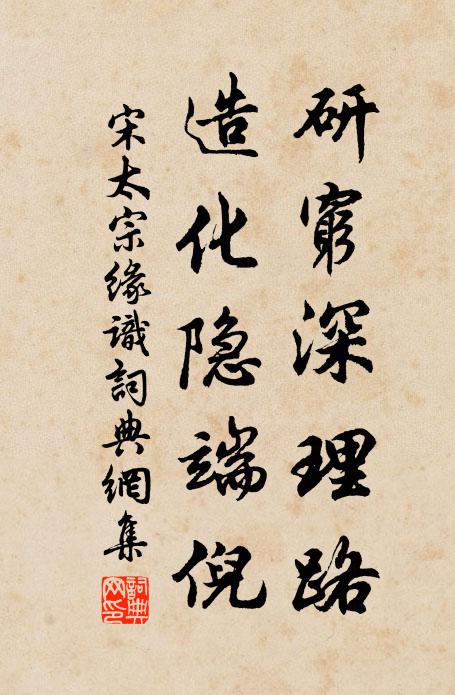 研窮深理路
造化隐端倪
宋太宗缘識詞典網集
詞典網印